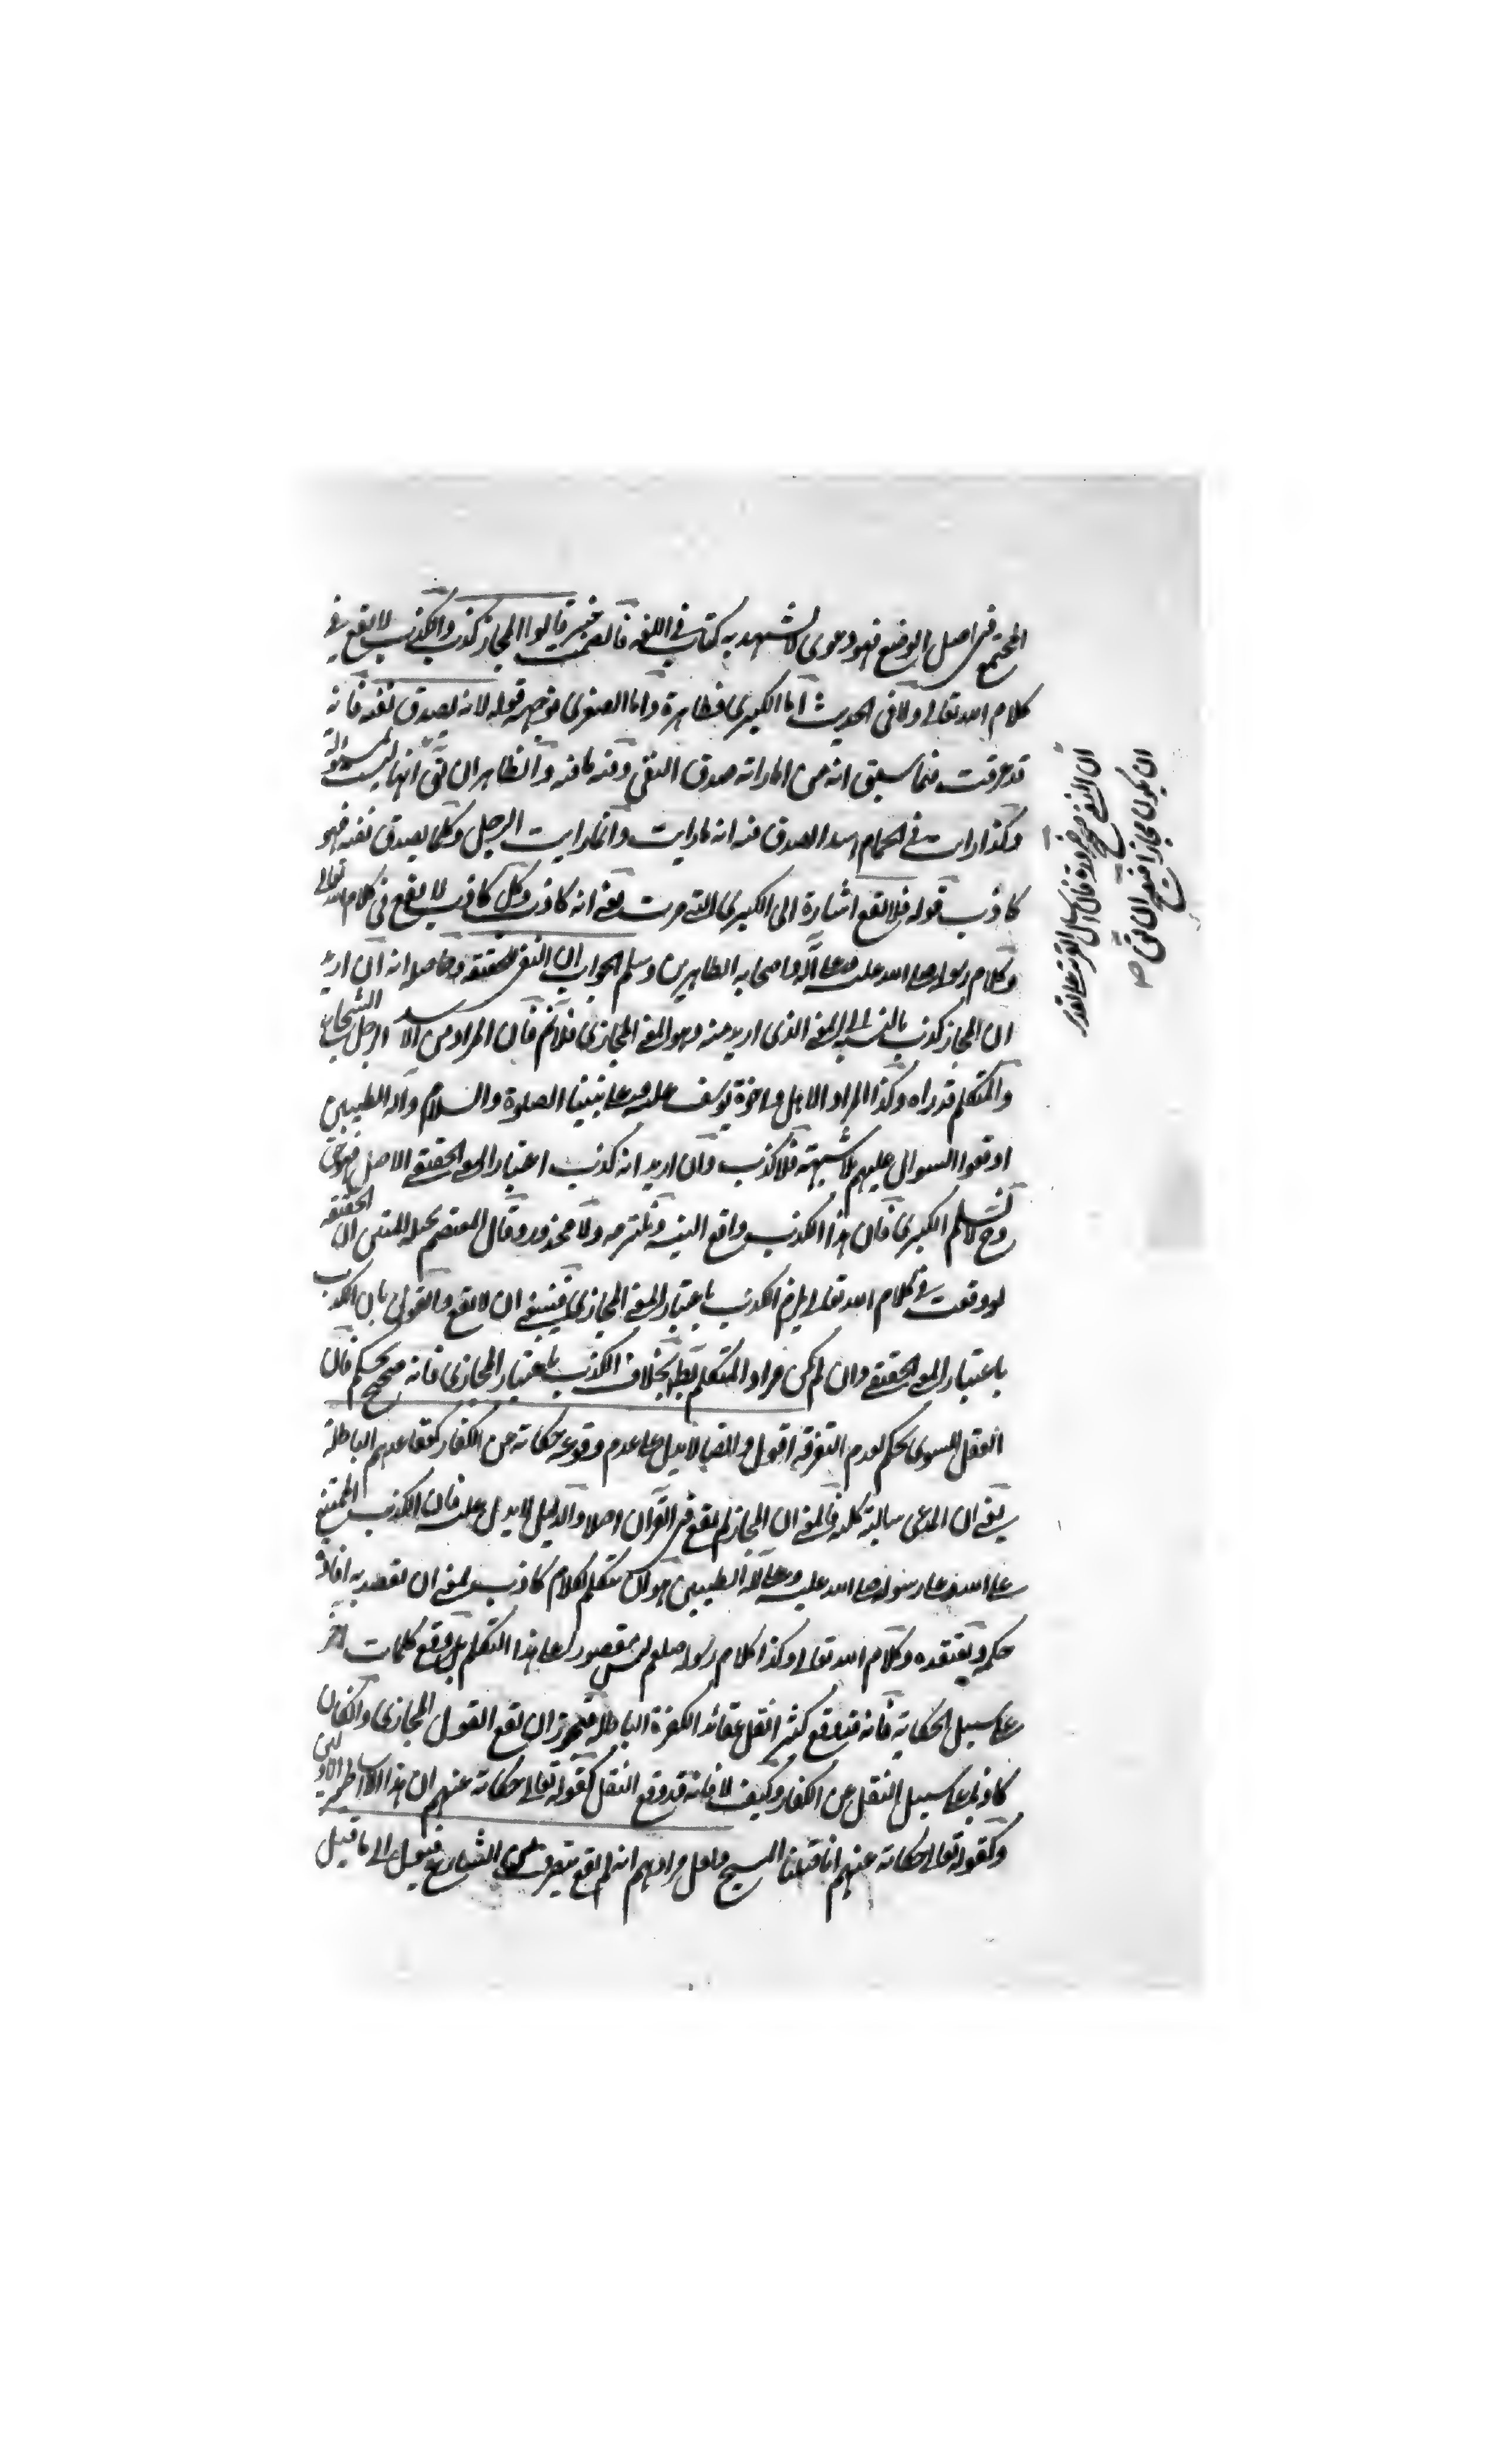 المجتمع في اصل الوضع فهو دعوى لا يشهد به كتاب في اللغة قالوا المجاز كذب والكذب لا يقع في
كلام الله تعالى ولا في الحديث اما الكبرى فظاهرة واما الصغرى قوله لانه يصدق نفيه فانه
قد عرفت فيما سبق انه من اماراته صدق النفي وفيه ما فيه والظاهر ان
وكذا رايت في الحمام اسدا لصدق انه ما رايت وانما رايت الرجل وكلما يصدق نفيه فهو
كاذب قوله فلا يقع اشارة الى الكبرى التي مرت يعني انه كاذب وكل كاذب لا يقع في كلام الله تعالى
وكلام رسوله صلى الله عليه وعلى آله واصحابه الطاهرين وسلم الجواب ان النفي للحقيقة وحاصله انه ان اريد
ان المجاز كذب بالنسبة الى المعنى الذي اريد منه وهو المعنى المجازي فلا نم فان المراد من الاسد الرجل الشجاع
والمتكلم قد راه وكذا المراد الاهل واخوة يوسف عليه وعلى نبينا الصلوة والسلام وآله الطيبين
اوقعوا السوال عليهم بلا شبهة فلا كذب وان اريد انه كذب باعتبار المعنى الحقيقي الاصل
وح لا نسلم الكبرى فان هذا الكذب واقع البتة ونلتزمه ولا محذور وقال المعتصم بحبله المتين ان الحقيقة
لو وقعت في كلام الله تعالى يلزم الكذب باعتبار المعنى المجازي فينبغي ان لا يقع والقول بان الكذب
باعتبار المعنى الحقيقي وان لم يكن مراد المتكلم بخلاف الكذب باعتبار المجازي فانه صحيح تحكم فان
العقل السوي يحكم بعدم التفرقة اقول وايضا لا يدل على عدم وقوعه حكاية من الكفار كعقائدهم الباطلة
يعني ان المدعى سالبة كلية فالمعنى ان المجاز لم يقع في القرآن اصلا والدليل لا يدل عليه فان الكذب الممتنع
على الله وعلى رسوله صلى الله عليه وعلى آله الطيبين هو ان يتكلم بكلام كاذب بمعنى ان يقصد به افادة
حكمه ويعتقده وكلام الله تعالى وكذا كلام رسوله صلعم ليس مقصورا على هذا التكلم بل وقع كلمات اخر
على سبيل الحكاية فانه قد وقع كثيرا نقل عقائد الكفرة الباطلة فيجوز ان يقع القول المجازي وان كان
كاذبا على سبيل النقل من الكفار وكيف لا فانه قد وقع النقل كقوله تعالى حكاية عنهم ان هذا الا اساطير الاولين
وكقوله تعالى حكاية عنهم انا قتلنا المسيح ولعل مرادهم انه لم يقع الشارع فيؤل الى ما قيل
ان يكون مجازا